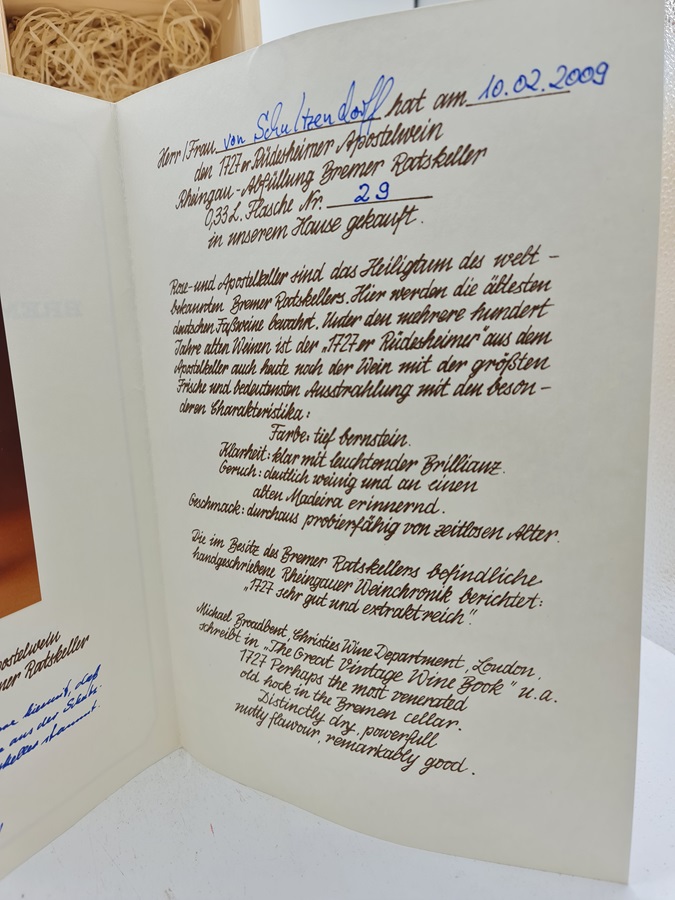 postelwein
mer Ratskeller
Herr/Frau von Schultzendorff hat am 10.02.2009
den 1727er Rüdesheimer Apostelwein
Rheingau-Abfüllung Bremer Ratskeller
0,33 L. Flasche Nr. 29
in unserem Hause gekauft.
Rose-und Apostelkeller sind das Heiligtum des welt-
bekannten Bremer Ratskellers. Hier werden die ältesten
deutschen Faßweine bewahrt. Unter den mehrere hundert
Jahre alten Weinen ist der „1727er Rüdesheimer" aus dem
Apostelkeller auch heute noch der Wein mit der größten
Frische und bedeutensten Ausstrahlung mit den beson-
deren Charakteristika:
Farbe: tief bernstein.
Klarheit: klar mit leuchtender Brillianz.
Geruch: deutlich weinig und an einen
alten Madeira erinnernd.
Geschmack: durchaus probierfähig von zeitlosen Alter.
Die im Besitz des Bremer Ratskellers befindliche
handgeschriebene Rheingauer Weinchronik berichtet:
„1727 sehr gut und extraktreich".
Michael Broadbent, Christies Wine Department, London,
schreibt in „The Great Vintage Wine Book" u.a.
1727 Perhaps the most venerated
old hock in the Bremen cellar.
Distinctly dry, powerfull
nutty flavour, remarkably good.